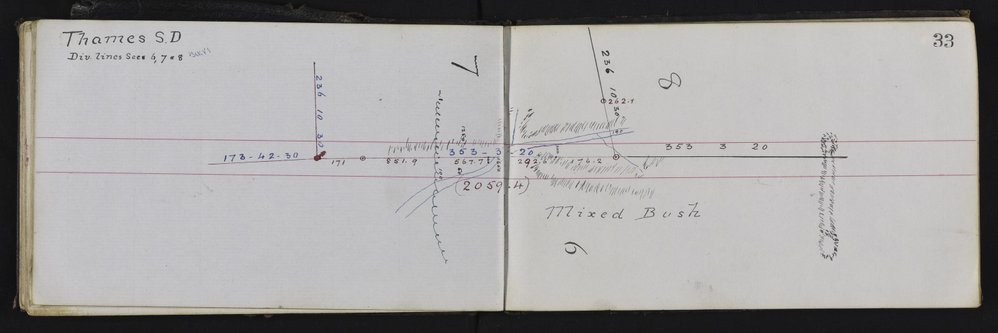 Thames S.D
Div. lines Secs 6, 7 & 8
33
7
8
236 10 30
236 10 30
262.1
173-42-30
171
851.9
353-3-20
567.7
292.6
74.2
353 3 20
(2059.4)
Mixed Bush
6